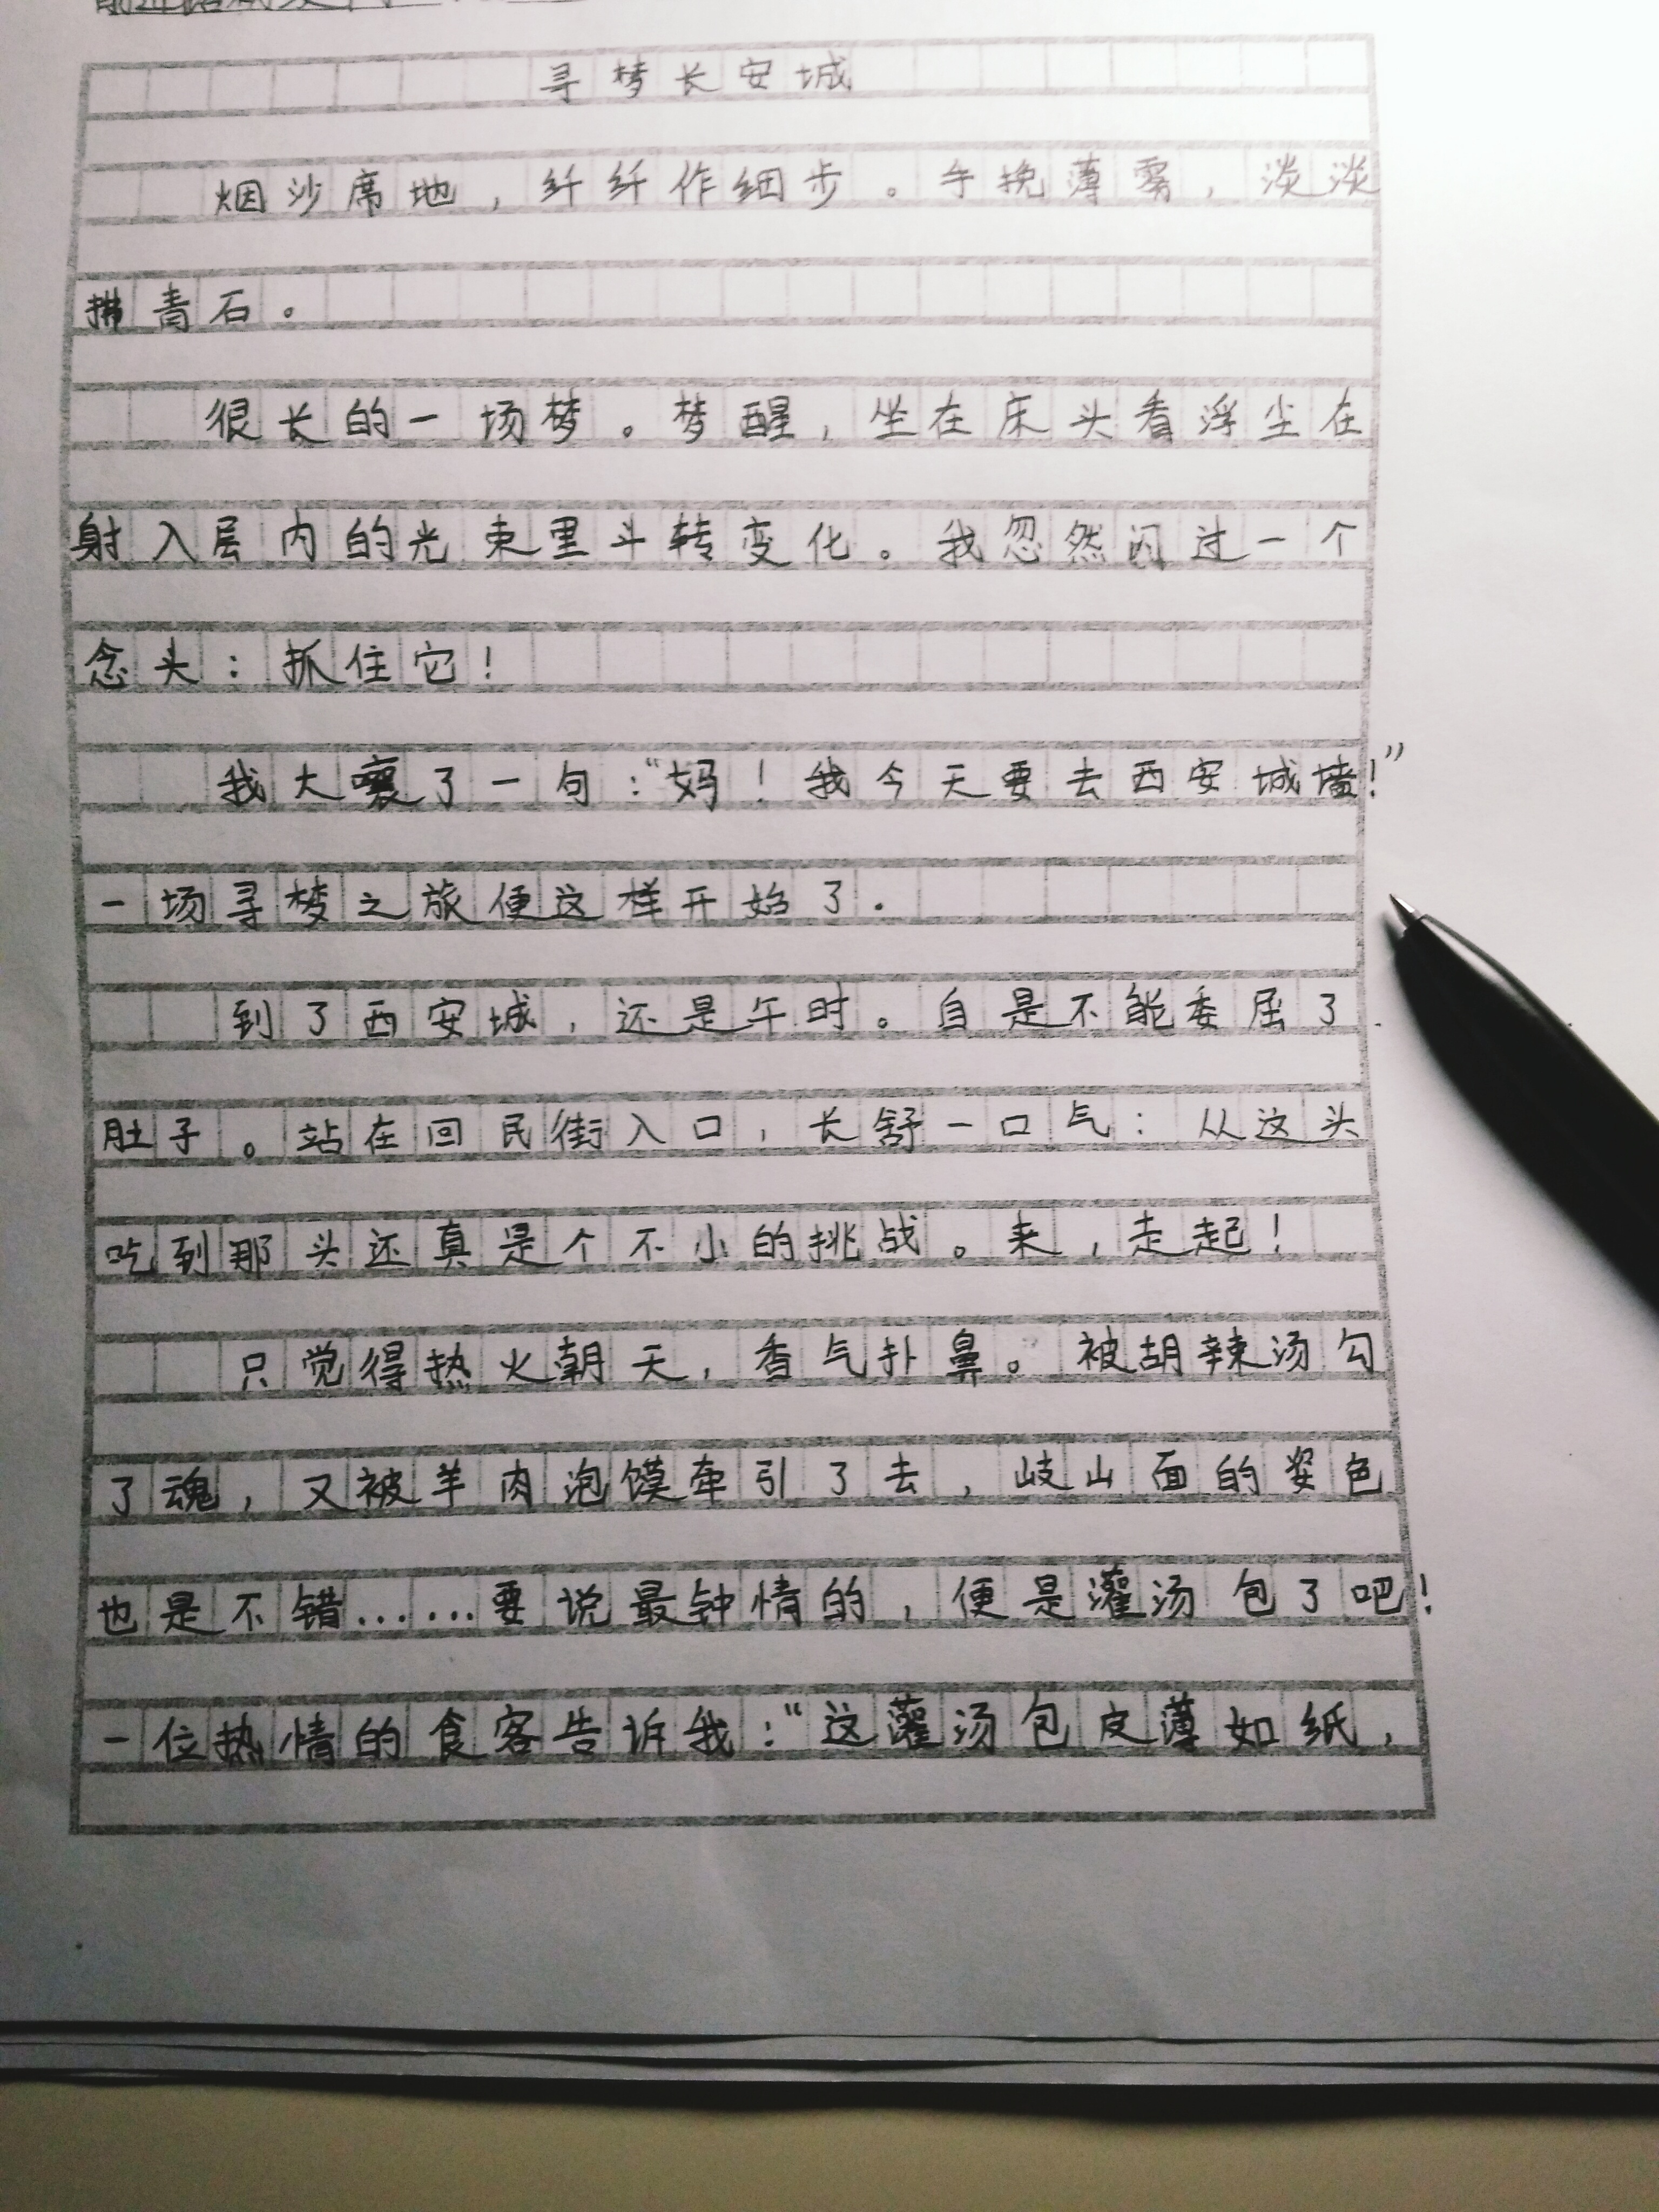 寻梦长安城
烟沙席地，纤纤作细步。手挽薄雾，淡淡
拂青石。
很长的一场梦。梦醒，坐在床头看浮尘在
射入屋内的光束里斗转变化。我忽然闪过一个
念头：抓住它！
我大嚷了一句：“妈！我今天要去西安城墙！”
一场寻梦之旅便这样开始了.
到了西安城，还是午时。自是不能委屈了
肚子。站在回民街入口，长舒一口气：从这头
吃到那头还真是个不小的挑战。来，走起！
只觉得热火朝天，香气扑鼻。被胡辣汤勾
了魂，又被羊肉泡馍牵引了去，岐山面的姿色
也是不错……要说最钟情的，便是灌汤包了吧！
一位热情的食客告诉我：“这灌汤包皮薄如纸，